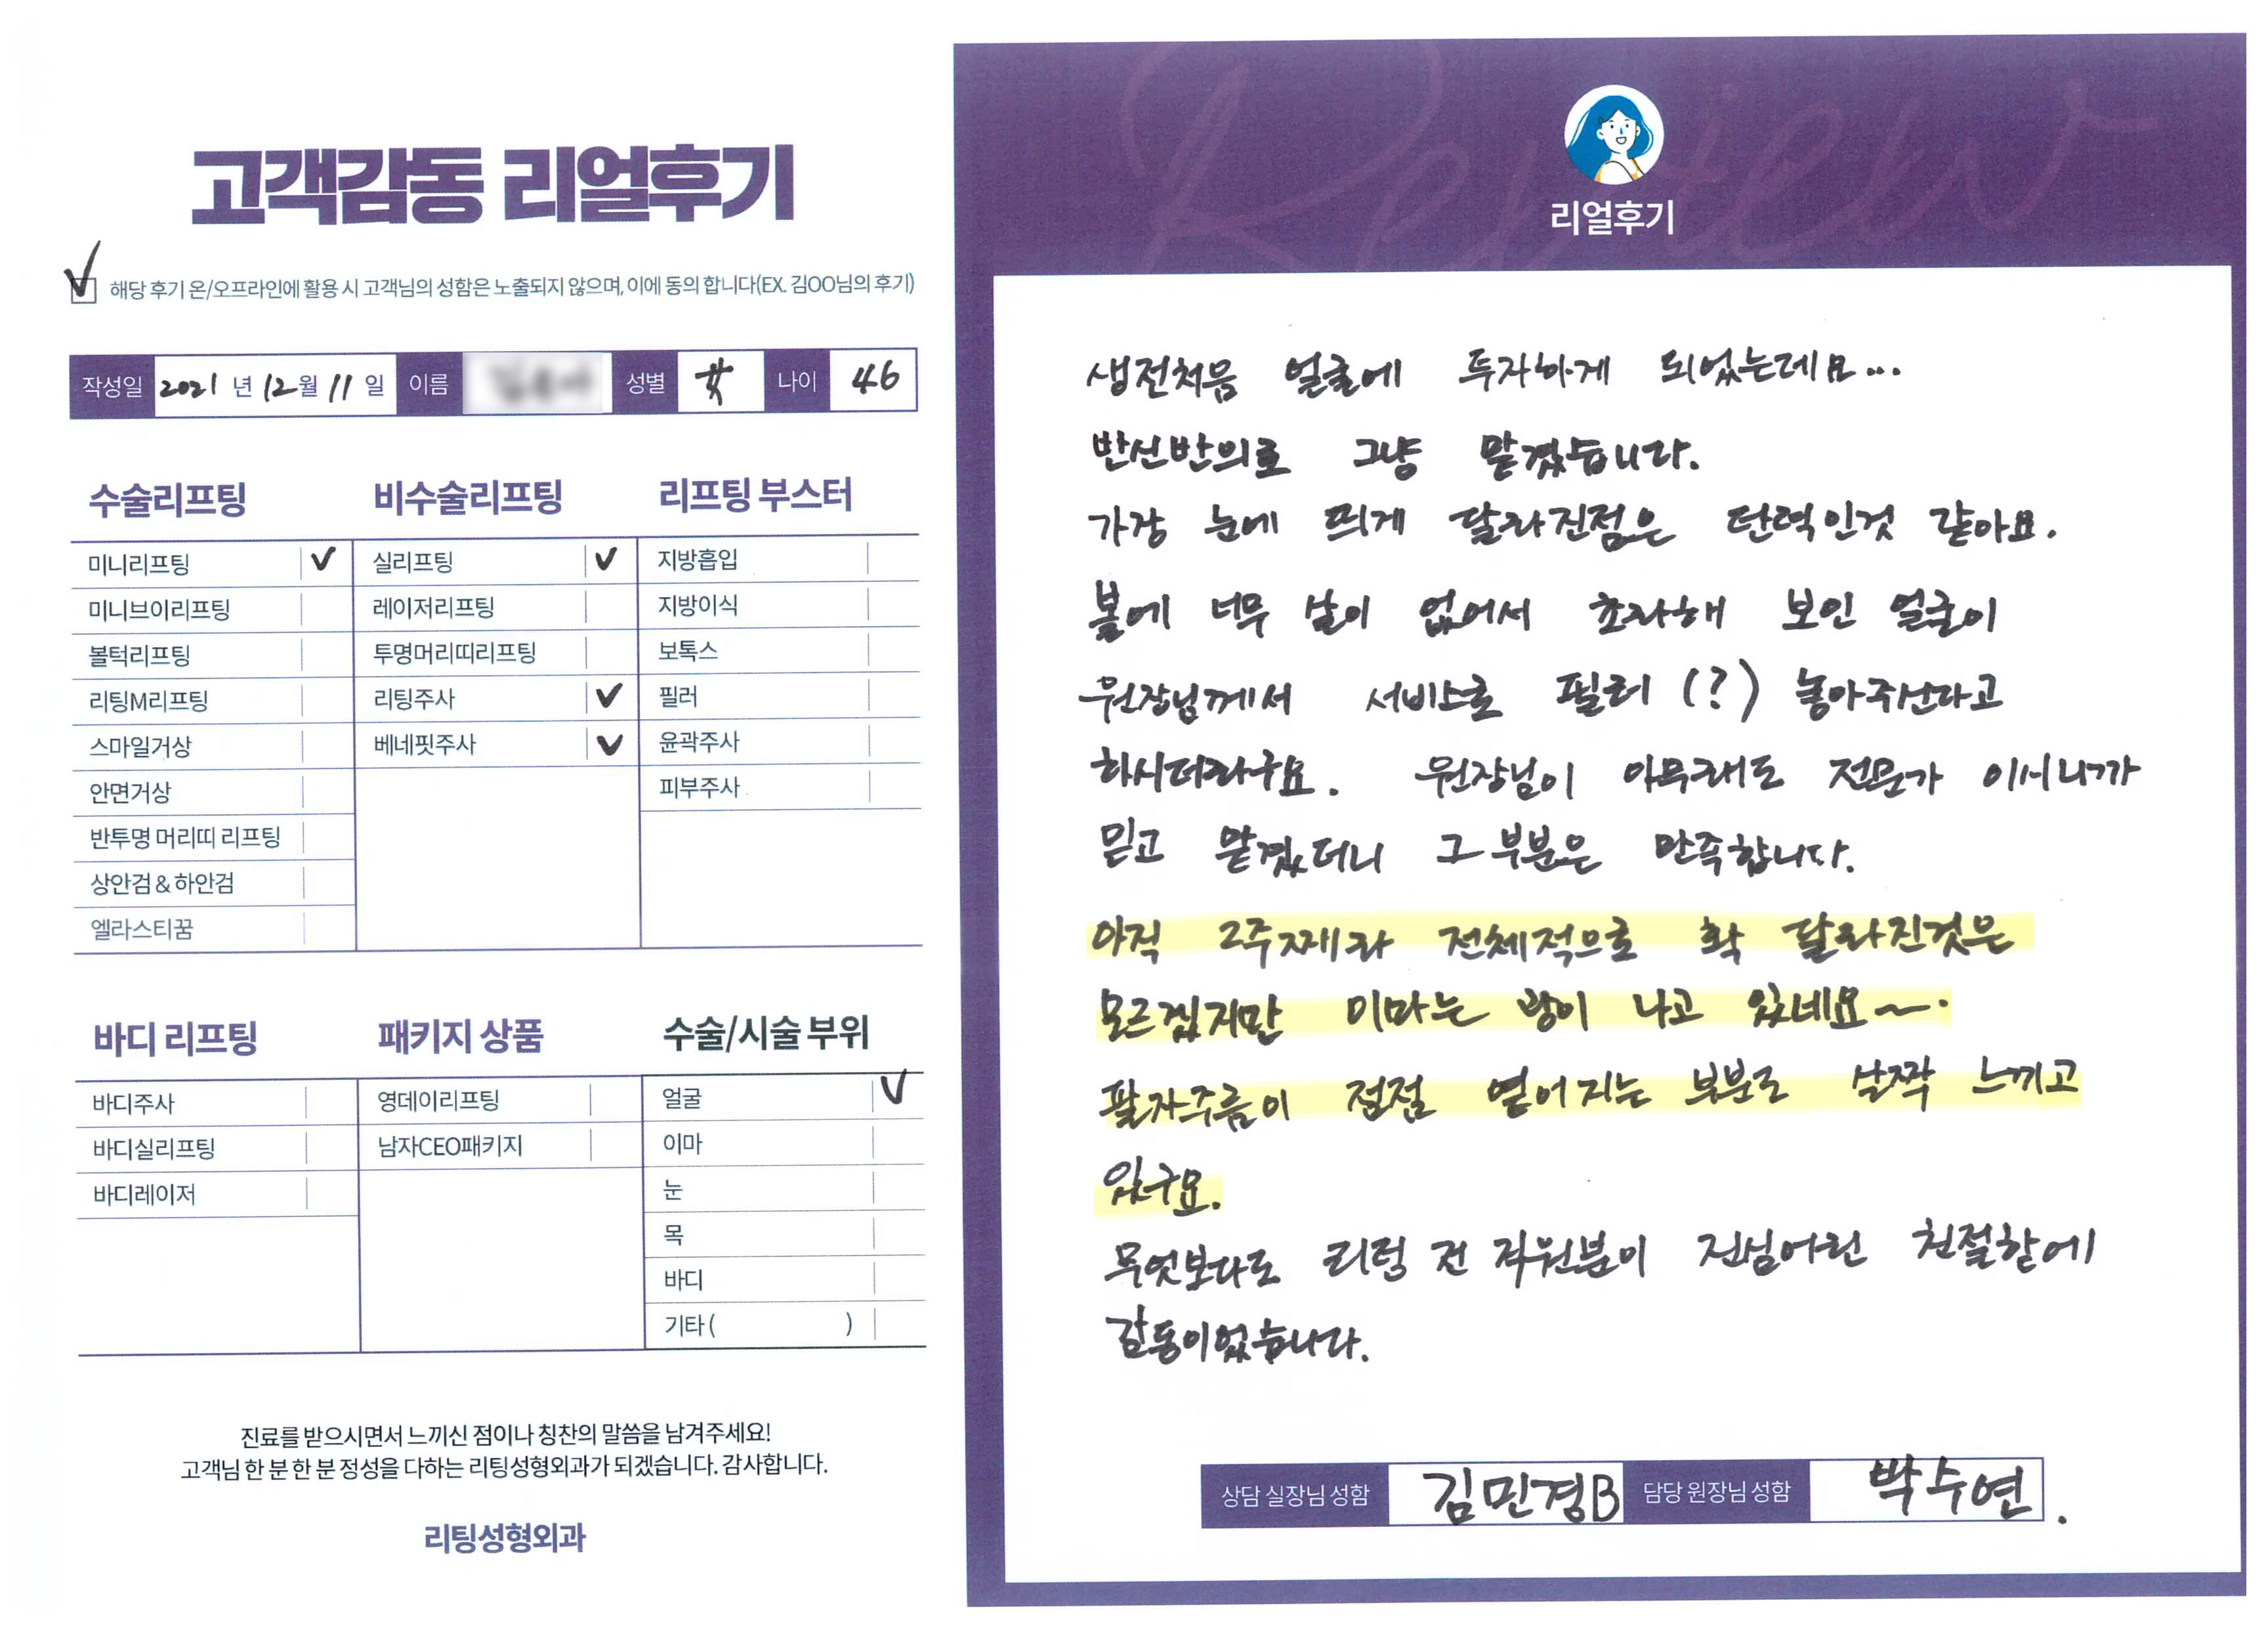 고객감동 리얼후기
✓ 해당 후기 온/오프라인에 활용 시 고객님의 성함은 노출되지 않으며, 이에 동의 합니다(EX. 김OO님의 후기)
작성일 2021 년 12 월 11 일 이름 성별 女 나이 46
수술리프팅
미니리프팅 ✓
미니브이리프팅
볼턱리프팅
리팅M리프팅
스마일거상
안면거상
반투명 머리띠 리프팅
상안검 & 하안검
엘라스티꿈
비수술리프팅
실리프팅 ✓
레이저리프팅
투명머리띠리프팅
리팅주사 ✓
베네핏주사 ✓
리프팅 부스터
지방흡입
지방이식
보톡스
필러
윤곽주사
피부주사
바디 리프팅
바디주사
바디실리프팅
바디레이저
패키지 상품
영데이리프팅
남자CEO패키지
수술/시술 부위
얼굴 ✓
이마
눈
목
바디
기타 ( )
진료를 받으시면서 느끼신 점이나 칭찬의 말씀을 남겨주세요!
고객님 한 분 한 분 정성을 다하는 리팅성형외과가 되겠습니다. 감사합니다.
리팅성형외과
Review
리얼후기
생전처음 얼굴에 투자하게 되었는데요...
반신반의로 그냥 맡겼습니다.
가장 눈에 띄게 달라진점은 탄력인것 같아요.
볼에 너무 살이 없어서 초라해 보인 얼굴이
원장님께서 서비스로 필러 (?) 놓아주신다고
하시더라구요. 원장님이 아무래도 전문가 이시니까
믿고 맡겼더니 그 부분은 만족합니다.
아직 2주째라 전체적으로 확 달라진것은
모르겠지만 이마는 광이 나고 있네요~.
팔자주름이 점점 옅어지는 부분도 살짝 느끼고
있구요.
무엇보다도 리팅 전 직원분이 진심어린 친절함에
감동이었습니다.
상담 실장님 성함 김민경B 담당 원장님 성함 박수연.